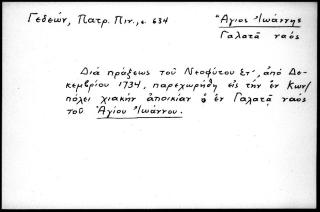 Γεδεών, Πατρ. Πιν., σ. 634
Ἅγιος Ἰωάννης
Γαλατᾶ ναός
Διά πράξεως τοῦ Νεοφύτου Στ´, ἀπό Δε-
κεμβρίου 1734, παρεχωρήθη εἰς τήν ἐν Κων/
πόλει χιακήν ἀποικίαν ὁ ἐν Γαλατᾷ ναός
τοῦ Ἁγίου Ἰωάννου.